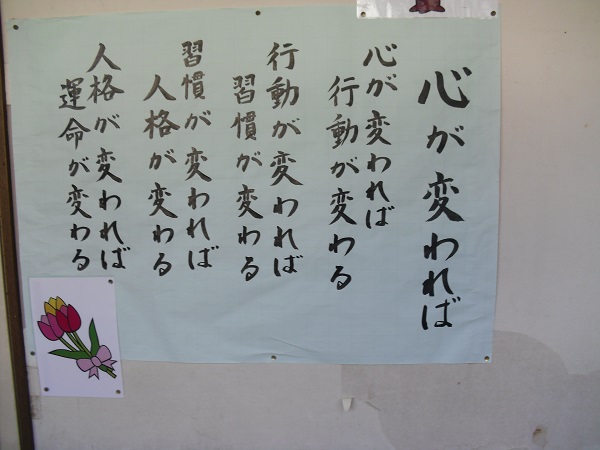 心が変われば
心が変われば
行動が変わる
行動が変われば
習慣が変わる
習慣が変われば
人格が変わる
人格が変われば
運命が変わる